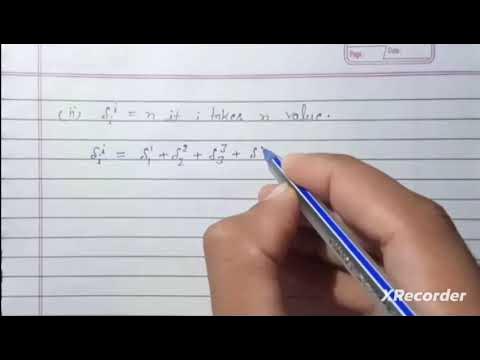 Page: Date:
(ii) δᵢⁱ = n if i takes n value.
δᵢⁱ = δ₁¹ + δ₂² + δ₃³ + δ
XRecorder